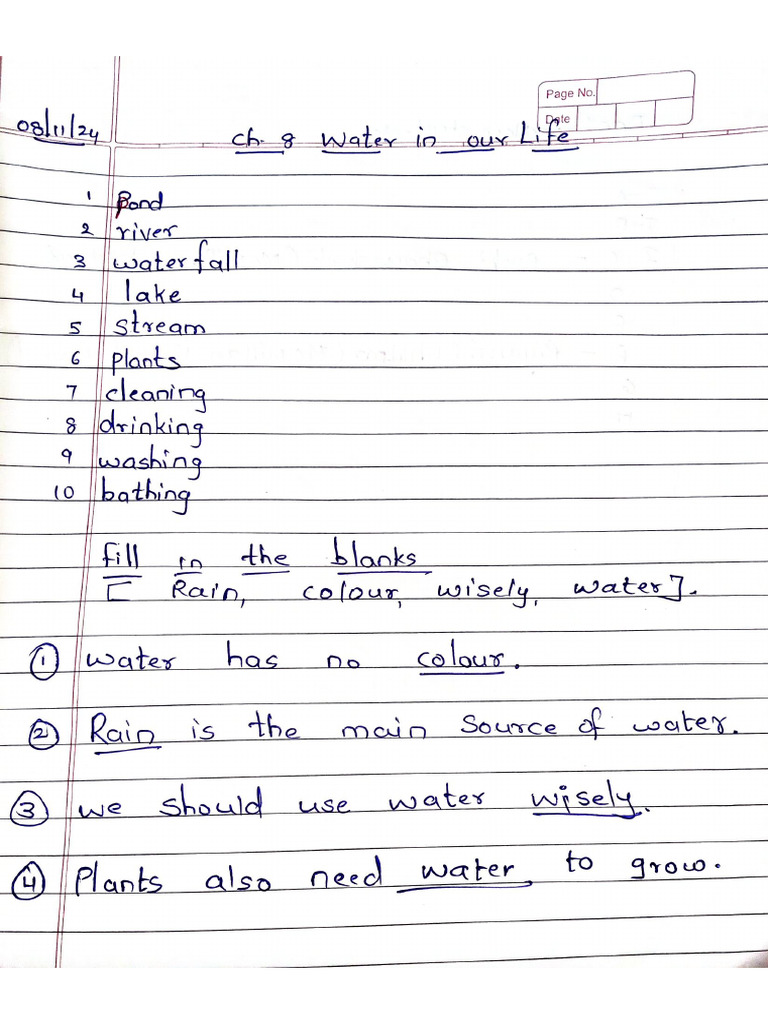 Page No.
Date
08/11/24
Ch. 8 Water in our Life
1 Pond
2 river
3 waterfall
4 lake
5 stream
6 plants
7 cleaning
8 drinking
9 washing
10 bathing
fill in the blanks
[ Rain, colour, wisely, water].
① water has no colour.
② Rain is the main source of water.
③ we should use water wisely.
④ Plants also need water to grow.